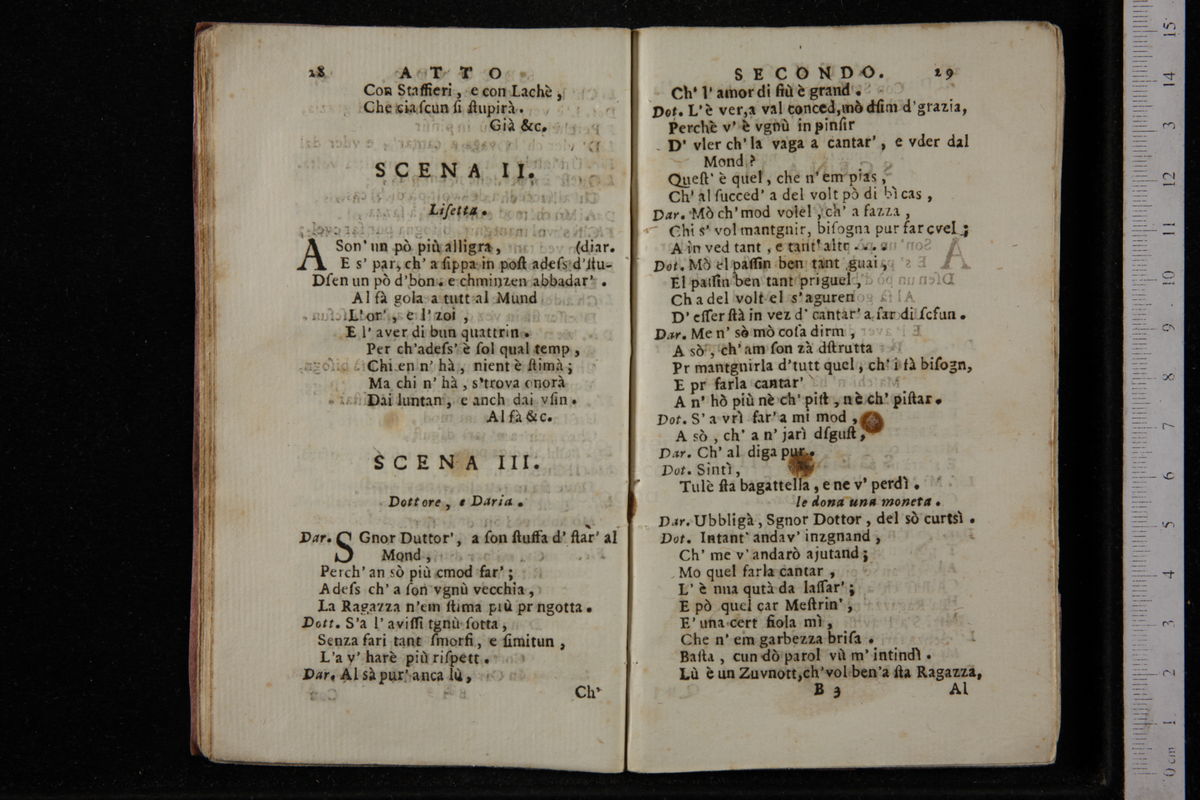 28 ATTO
Con Staffieri, e con Lachè,
Che ciaſcun ſi ſtupirà.
Già &c.
SCENA II.
Liſetta.
A Son' un pò più alligra, (diar.
E s' par, ch' a ſippa in poſt adeſs d'ſtu-
Dſen un pò d'bon. e chminzen abbadar'.
Al fà gola a tutt al Mund
L'or', e l'zoi,
E l' aver di bun quattrin.
Per ch'adeſs' è ſol qual temp,
Chi en n' hà, nient è ſtimà;
Ma chi n' hà, s'trova onorà
Dai luntan, e anch dai vſin.
Al fà &c.
SCENA III.
Dottore, e Daria.
Dar. SGnor Duttor', a ſon ſtuffa d' ſtar' al
Mond,
Perch' an sò più cmod far';
Adeſs ch' a ſon vgnù vecchia,
La Ragazza n'em ſtima più pr ngotta.
Dott. S'a l' aviſſi tgnù ſotta,
Senza fari tant ſmorfi, e ſimitun,
L'a v' harè più riſpett.
Dar. Al sà pur' anca lù,
Ch'
SECONDO. 29
Ch' l' amor di fiù è grand.
Dot. L'è ver, a val conced, mò dſim d'grazia,
Perchè v' è vgnù in pinſir
D' vler ch' la vaga a cantar', e vder dal
Mond?
Queſt' è quel, che n' em pias,
Ch' al ſucced' a del volt pò di bì cas,
Dar. Mò ch' mod volel, ch' a fazza,
Chi s' vol mantgnir, biſogna pur far cvel;
A in ved tant, e tant' altr....
Dot. Mò el paſſin ben tant guai,
El paſſin ben tant priguel,
Ch a del volt el s'aguren
D' eſſer ſtà in vez d' cantar' a far di ſcfun.
Dar. Me n' sò mò coſa dirm,
A sò, ch' am ſon zà dſtrutta
Pr mantgnirla d'tutt quel, ch' i fà biſogn,
E pr farla cantar'
A n' hò più nè ch' piſt, nè ch' piſtar.
Dot. S' a vrì far' a mi mod,
A sò, ch' a n' jarì dſguſt,
Dar. Ch' al diga pur.
Dot. Sintì,
Tulè ſta bagattella, e ne v' perdì.
le dona una moneta.
Dar. Ubbligà, Sgnor Dottor, del sò curtsì.
Dot. Intant' andav' inzgnand,
Ch' me v' andarò ajutand;
Mo quel farla cantar,
L' è nna qutà da laſſar';
E pò quel car Meſtrin',
E' una cert fiola mì,
Che n' em garbezza briſa.
Baſta, cun dò parol vù m' intindì.
Lù è un Zuvnott, ch'vol ben'a ſta Ragazza,
B 3 Al
0 cm 1 2 3 4 5 6 7 8 9 10 11 12 13 14 15